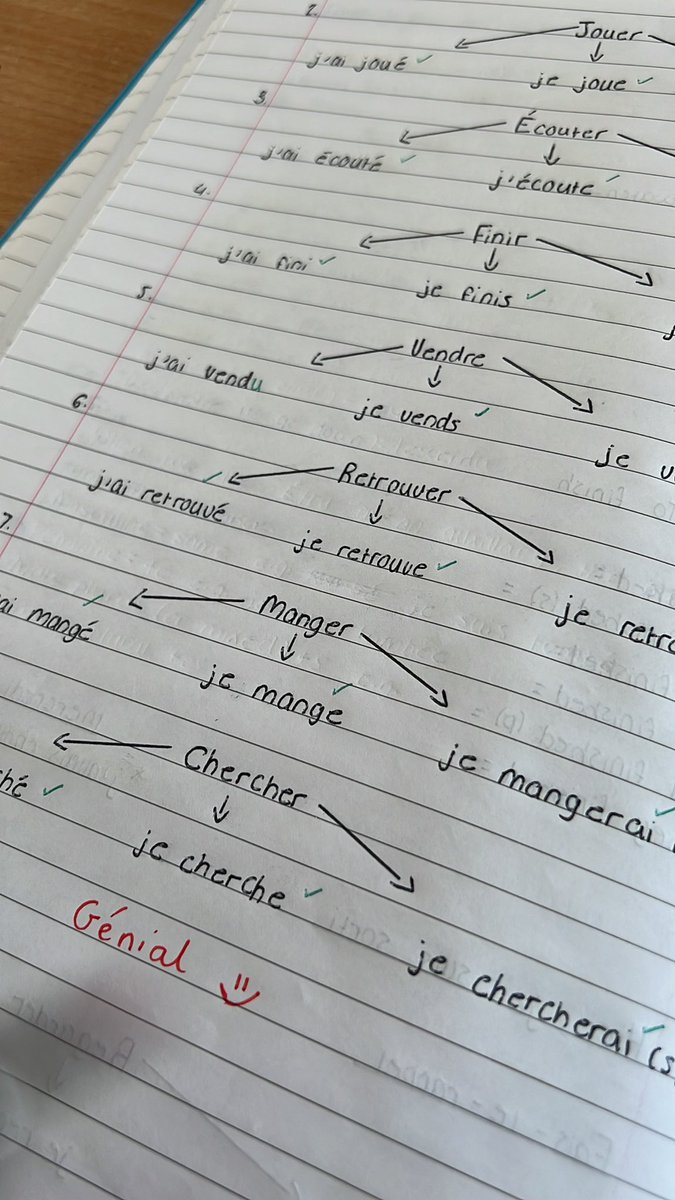 2.
Jouer
j'ai joué ✓
je joue ✓
3.
Écouter
j'ai écouté ✓
j'écoute ✓
4.
Finir
j'ai fini ✓
je finis ✓
5.
Vendre
j'ai vendu
je vends ✓
je v
6.
Retrouver
j'ai retrouvé ✓
je retrouve ✓
je retro
7.
Manger
ai mangé ✓
je mange ✓
je mangerai ✓
Chercher
ché ✓
je cherche ✓
je chercherai ✓ (s
Génial